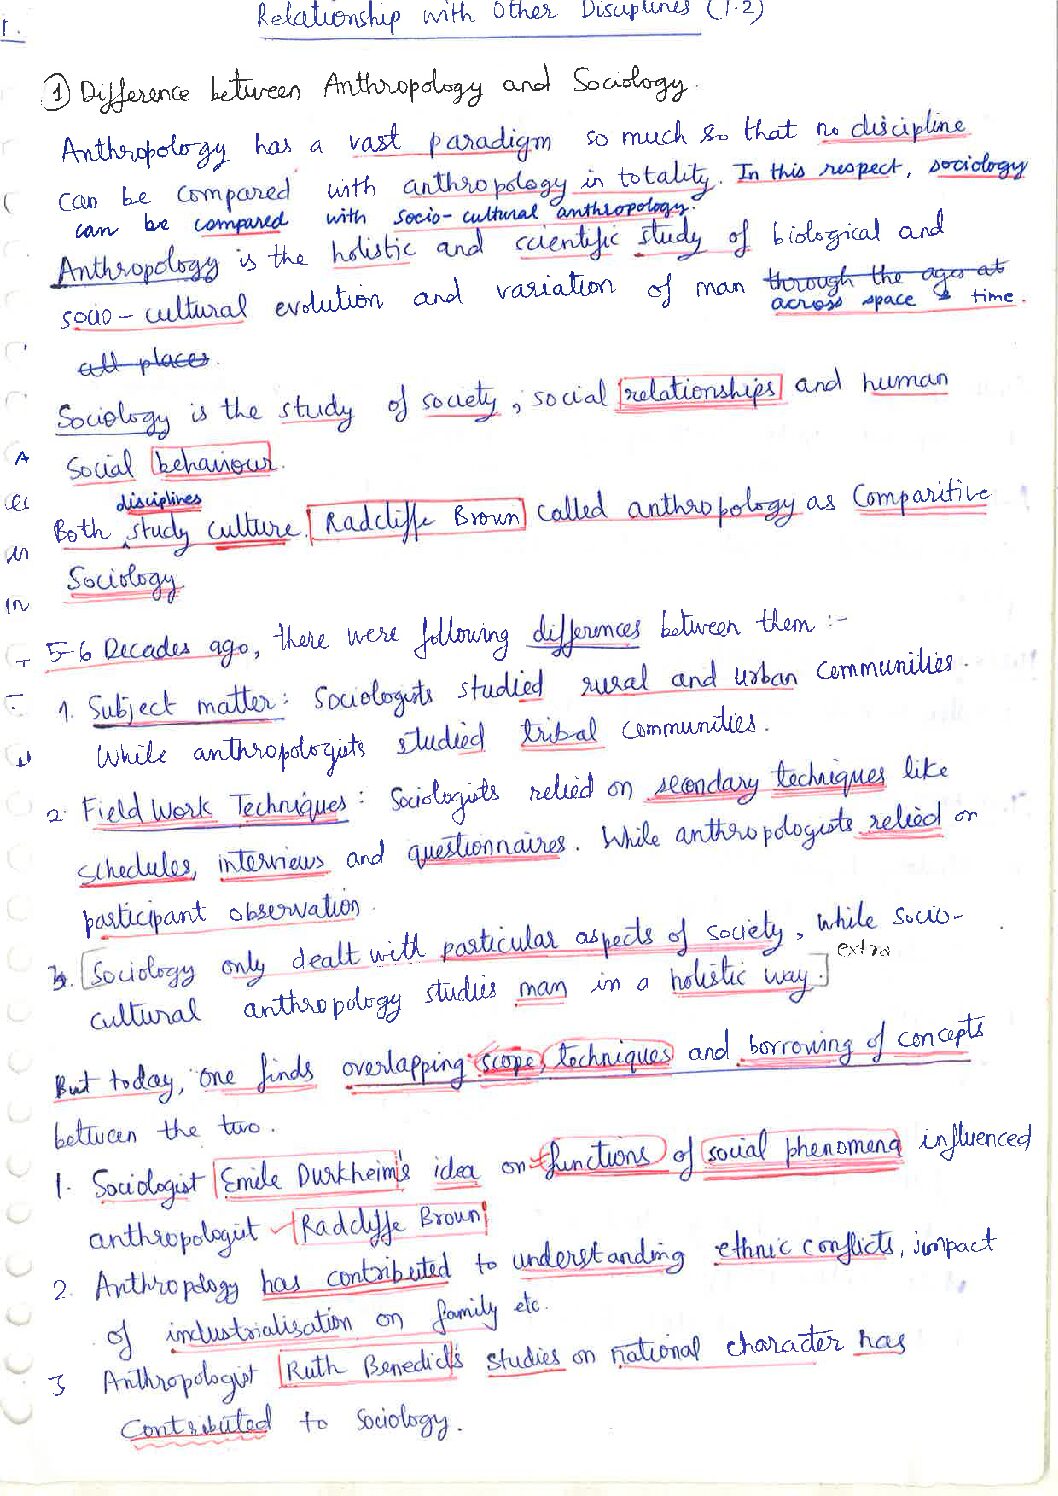 1.
Relationship with Other Disciplines (1.2)
① Difference between Anthropology and Sociology.
Anthropology has a vast paradigm so much so that no discipline
can be compared with anthropology in totality. In this respect, sociology
can be compared with socio-cultural anthropology.
Anthropology is the holistic and scientific study of biological and
socio-cultural evolution and variation of man through the ages at
across space & time.
all places
Sociology is the study of society, social relationships and human
social behaviour.
disciplines
Both study culture. Radcliffe Brown called anthropology as Comparitive
Sociology
5-6 Decades ago, there were following differences between them :-
1. Subject matter: Sociologists studied rural and urban communities.
While anthropologists studied tribal communities.
2. Field Work Techniques: Sociologists relied on secondary techniques like
schedules, interviews and questionnaires. While anthropologists relied on
participant observation.
3. [Sociology only dealt with particular aspects of society, while socio-
cultural anthropology studies man in a holistic way.] extra
But today, one finds overlapping scope, techniques and borrowing of concepts
between the two.
1. Sociologist Emile Durkheim's idea on functions of social phenomena influenced
anthropologist - Radcliffe Brown
2. Anthropology has contributed to understanding ethnic conflicts, impact
of industrialisation on family etc.
3 Anthropologist Ruth Benedict's studies on national character has
contributed to Sociology.